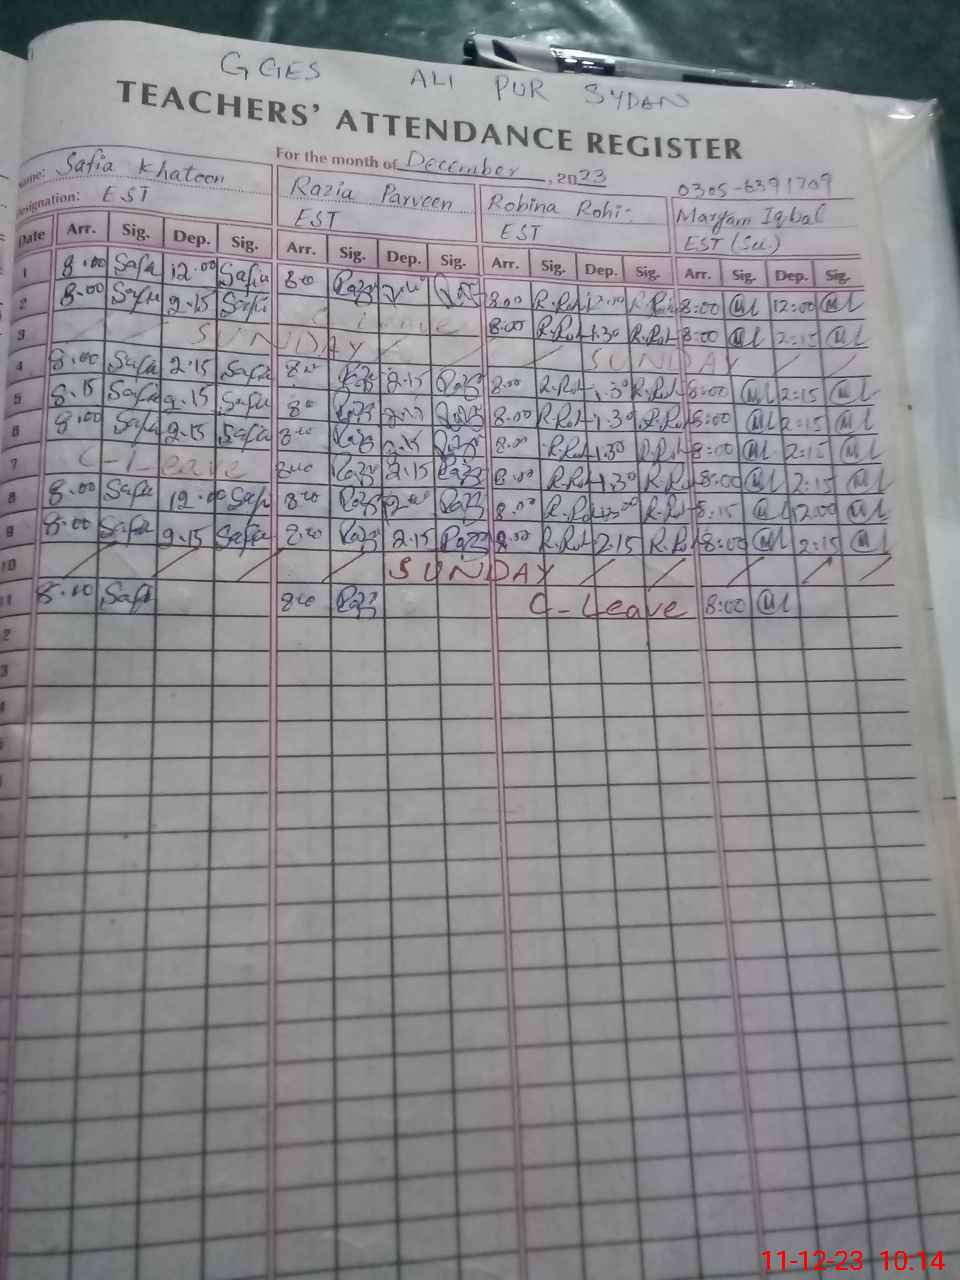 GGES ALI PUR SYDAN
TEACHERS' ATTENDANCE REGISTER
For the month of December, 2023
Name: Safia Khatoon Razia Parveen Robina Rohi- 0305-6391709
Maryam Iqbal
Designation: EST EST EST EST (Sci)
Date Arr. Sig. Dep. Sig. Arr. Sig. Dep. Sig. Arr. Sig. Dep. Sig. Arr. Sig. Dep. Sig.
1 8.00 Safia 12.00 Safia 800 8.00 R.Rohi 12.00 R.Rohi 8:00 12:00
2 8.00 Safia 2.15 Safia C Leave 8.00 R.Rohi 1.30 R.Rohi 8:00 2:15
3 SUNDAY SUNDAY
4 8.00 Safia 2.15 Safia 800 2.15 8.00 R.Rohi 1.30 R.Rohi 8:00 2:15
5 8.15 Safia 2.15 Safia 800 8.00 R.Rohi 1.30 R.Rohi 8:00 2:15
6 8.00 Safia 2.15 Safia 800 2.15 8.00 R.Rohi 1.30 R.Rohi 8:00 2:15
7 C-Leave 800 2.15 8.00 R.Rohi 1.30 R.Rohi 8:00 2:15
8 8.00 Safia 12.00 Safia 800 8.00 R.Rohi R.Rohi 8:15 12:00
9 8.00 Safia 2.15 Safia 8.00 2.15 8.00 R.Rohi 2.15 R.Rohi 8:00 2:15
10 SUNDAY
11 8.00 Safia 800 C-Leave 8:00
2
3
11-12-23 10.14